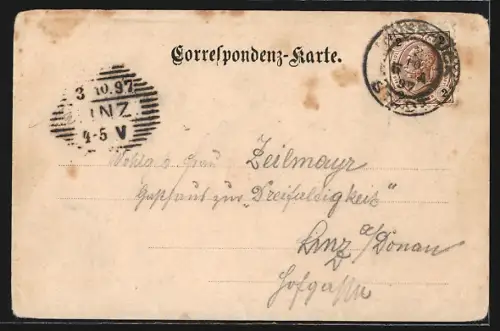 Correspondenz-Karte.
3.10.97
LINZ
4-5 V
Wohlgeb Frau Zeilmayr
Gasthaus zur "Dreifaldigkeit"
Linz a/Donau
Hofgasse